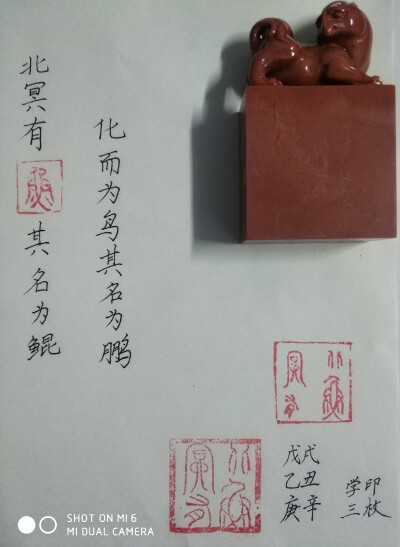 北冥有魚其名为鲲
化而为鸟其名为鹏
北冥有魚
北冥有魚
戊戌
乙丑
庚辛
学印
三枚
SHOT ON MI 6
MI DUAL CAMERA